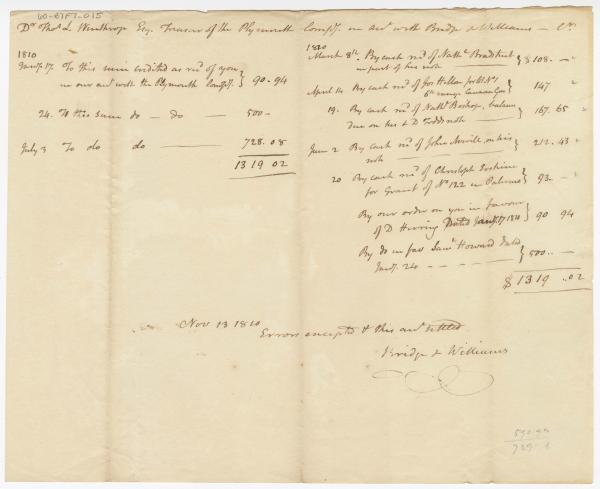 60-61F7-015
Dr Thos L. Winthrop Esqr. Treasr of the Plymouth Compy. in acct with Bridge & Williams — Cr.
1810
Jany. 17. To this sum credited as recd of you
in our acct with the Plymouth Compy. } 90.94
24. To this sum do — do — 500 –
July 3 To do do — 728.08
1319 02
1810
March 8th. By cash recd of Nathl Bradstreet
in part of his note } $108. –
April 14 By cash recd of for Lot No 1
6th range Canaan Gore } 147 "
19. By cash recd of Nathl Bishop, balance
due on his & D Todds note } 167.65
June 2 By cash recd of John Neville, on his
note } 212.43
20 By cash recd of Christoph Erskine
for Grant of No 122 in Palermo } 93 –
By our order on you in favour
of D Herring Dated Jany. 17 1810 } 90 94
By do in favr Saml Howard dated
Jany. 24 } 500. –
$ 1319 .02
Nov 13 1810
Errors excepted & this acct settled
Bridge & Williams
590.94
729